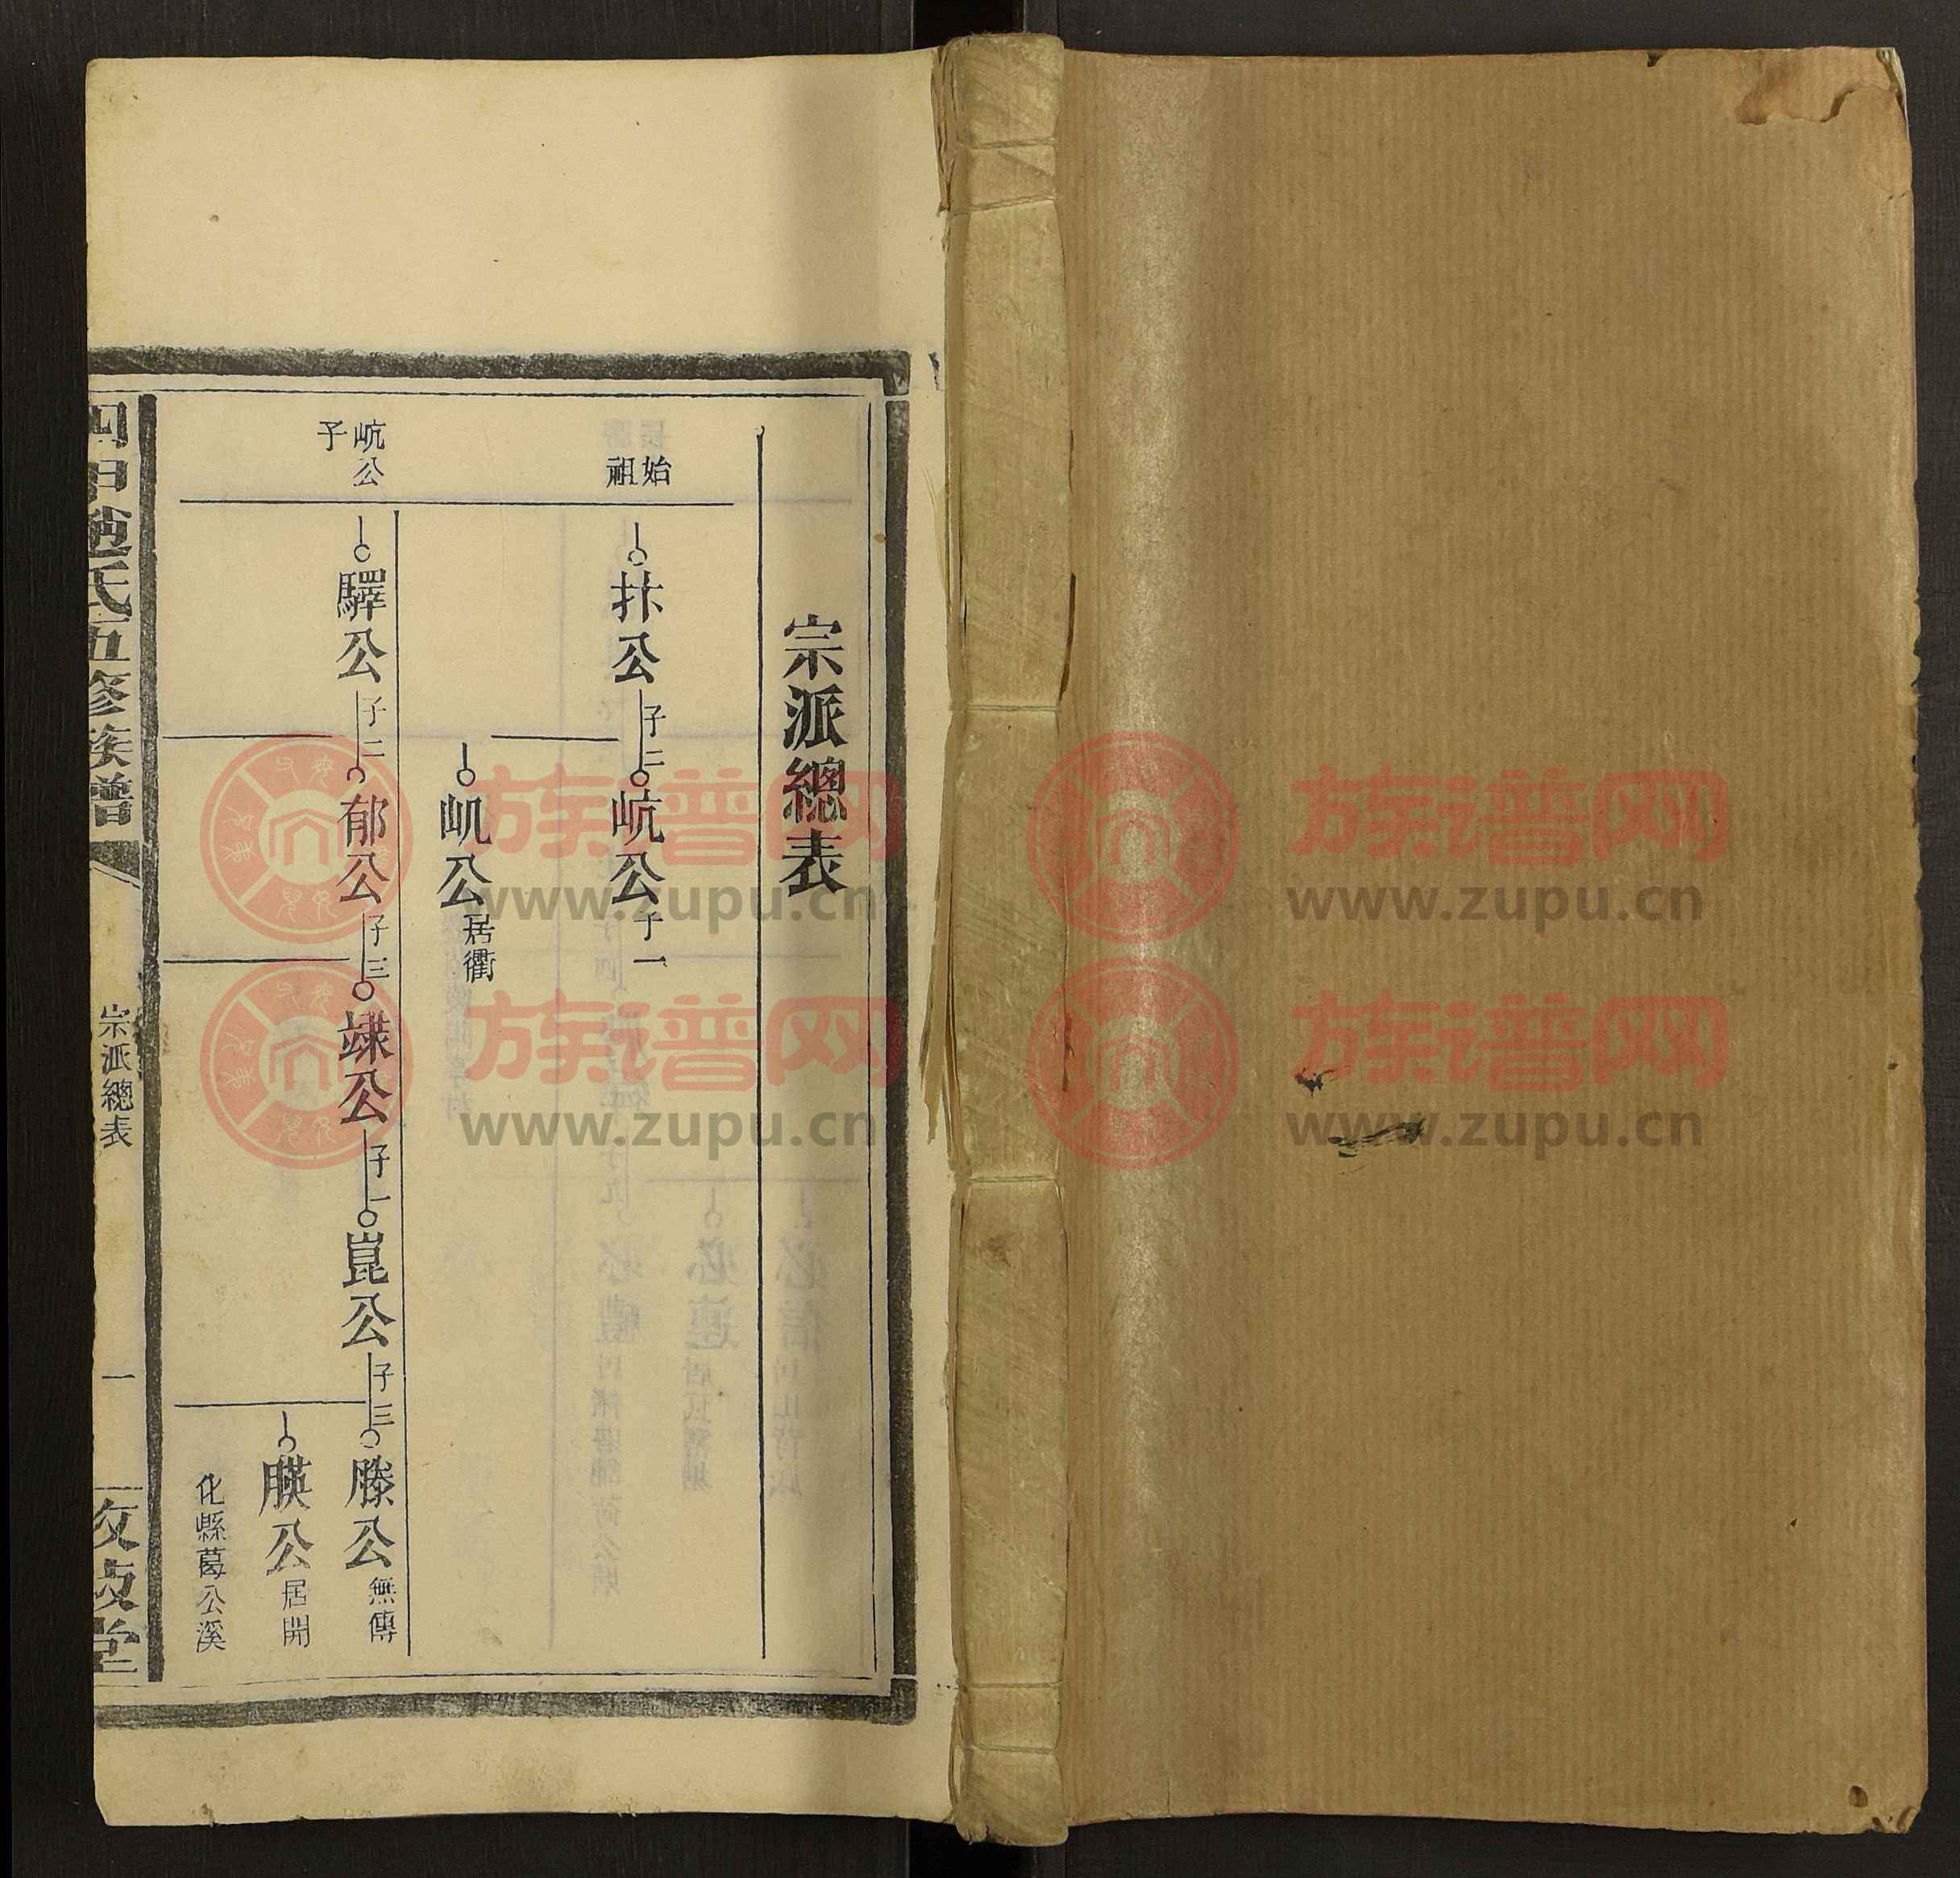 宗派總表
始祖
抃公
子二
岏公
子一
屼公
居衢
岏公子
驛公
子二
郁公
子三
子一
崑公
子三
滕公
無傳
公
居開
化縣葛公溪
趙氏五修族譜
宗派總表
一
堂
族谱网
www.zupu.cn
族谱网
www.zupu.cn
族谱网
www.zupu.cn
族谱网
www.zupu.cn